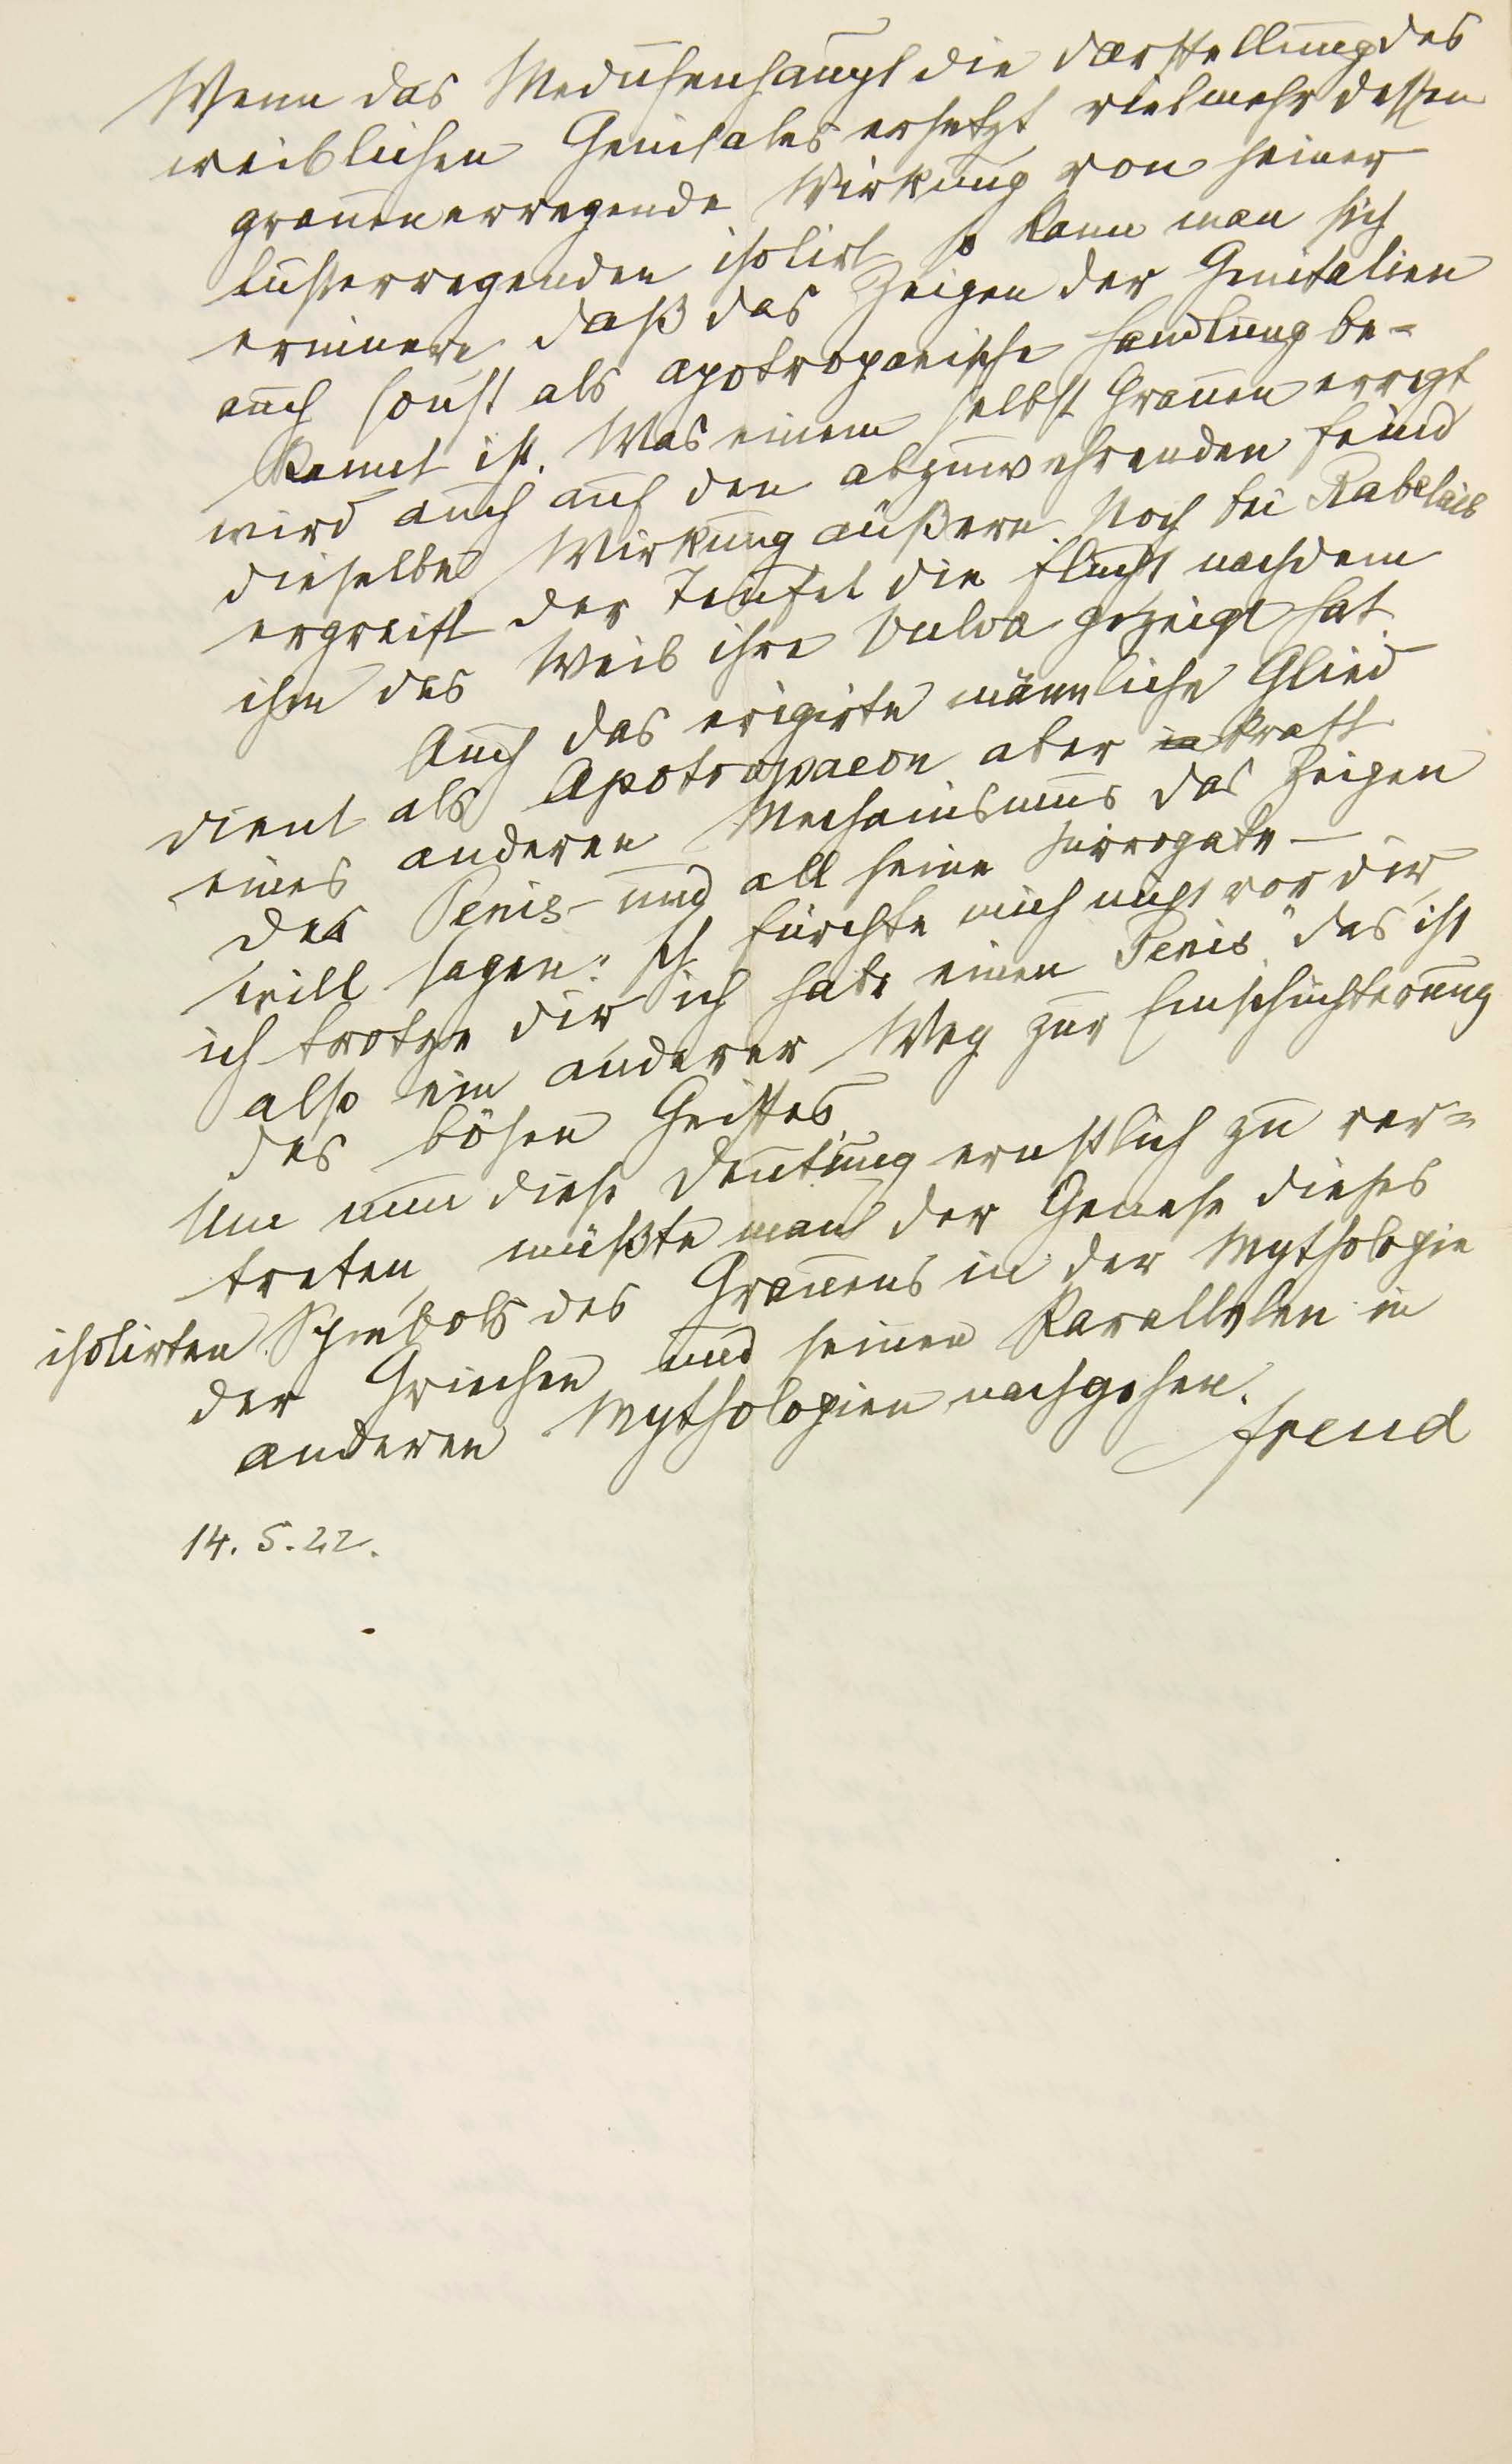 Wenn das Medusenhaupt die Darstellung des
weiblichen Genitales ersetzt, vielmehr dessen
grauenerregende Wirkung von seiner
lusterregenden isolirt, so kann man sich
erinnern, daß das Zeigen der Genitalien
auch sonst als apotropaeische Handlung be-
kannt ist. Was einem selbst Grauen erregt,
wird auch auf den abzuwehrenden Feind
dieselbe Wirkung äußern. Noch bei Rabelais
ergreift der Teufel die Flucht nachdem
ihm das Weib ihre Vulva gezeigt hat.
Auch das erigirte männliche Glied
dient als Apotropaeon aber in kraft
eines anderen Mechanismus das Zeigen
des Penis – und all seine Surrogate –
will sagen: Ich fürchte mich nicht vor dir,
ich trotze dir, ich habe einen Penis" das ist
also ein anderer Weg zur Einschüchterung
des bösen Geistes.
Um nun diese Deutung ernstlich zu ver-
treten, müßte man der Genese dieses
isolirten Symbols des Grauens in der Mythologie
der Griechen und seinen Parallelen in
anderen Mythologien nachgehen.
Freud
14. 5. 22.